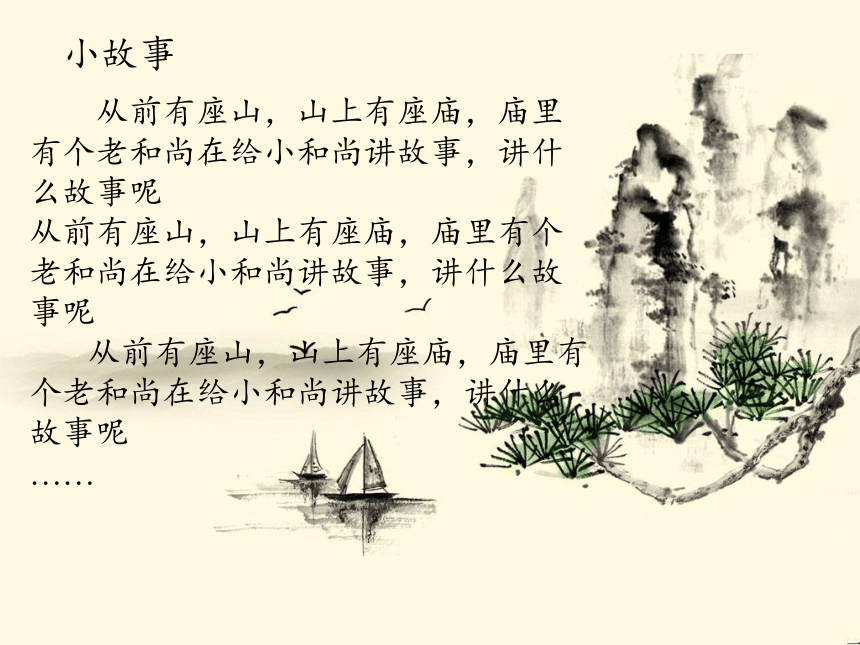 小故事
从前有座山，山上有座庙，庙里
有个老和尚在给小和尚讲故事，讲什
么故事呢
从前有座山，山上有座庙，庙里有个
老和尚在给小和尚讲故事，讲什么故
事呢
从前有座山，山上有座庙，庙里有
个老和尚在给小和尚讲故事，讲什么
故事呢
……